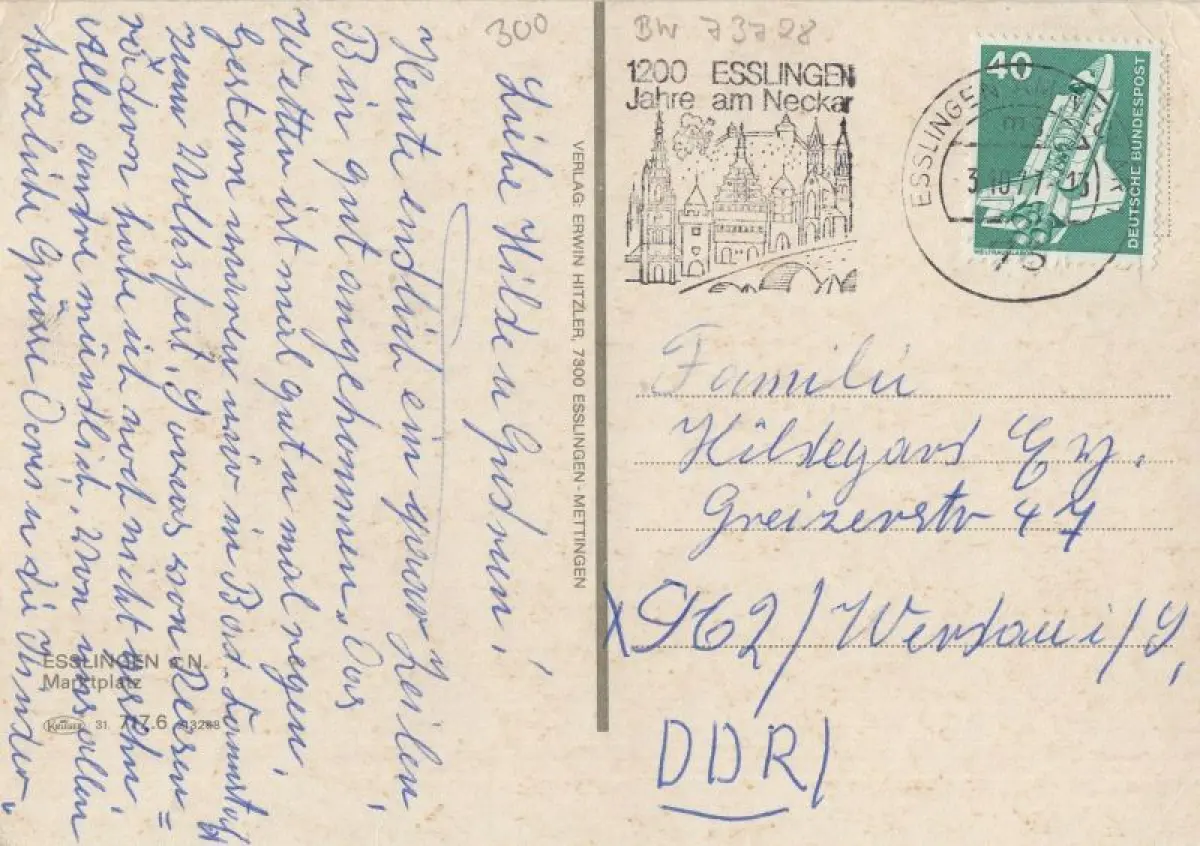 300
Liebe Hilde u Gudrun!
Heute endlich ein paar Zeilen
Bin gut angekommen. Das
Wetter ist mal gut u mal regen.
Gestern waren wir in Bad. Cannstatt
zum Volksfest, Sowas von Riesen=
rädern habe ich noch nicht gesehn.
Alles andre mündlich. Von uns allen
herzliche Grüsse Dora u die Kinder.
ESSLINGEN a. N.
Marktplatz
Krüger 31. 717.6
VERLAG: ERWIN HITZLER, 7300 ESSLINGEN-METTINGEN
BW 73728
1200 ESSLINGEN
Jahre am Neckar
ESSLINGEN
3.10.77-13
73
40
DEUTSCHE BUNDESPOST
Familie
Hildegard
Greizerstr 47
X962/Werdau i/S,
DDR/